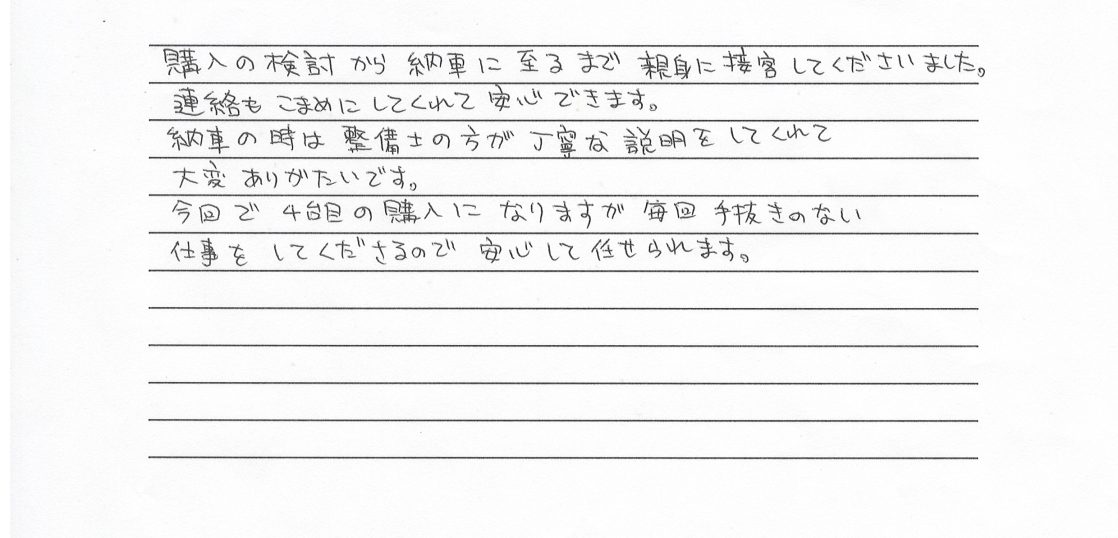 購入の検討から納車に至るまで親身に接客してくださいました。
連絡もこまめにしてくれて安心できます。
納車の時は整備士の方が丁寧な説明をしてくれて
大変ありがたいです。
今回で4台目の購入になりますが毎回手抜きのない
仕事をしてくださるので安心して任せられます。